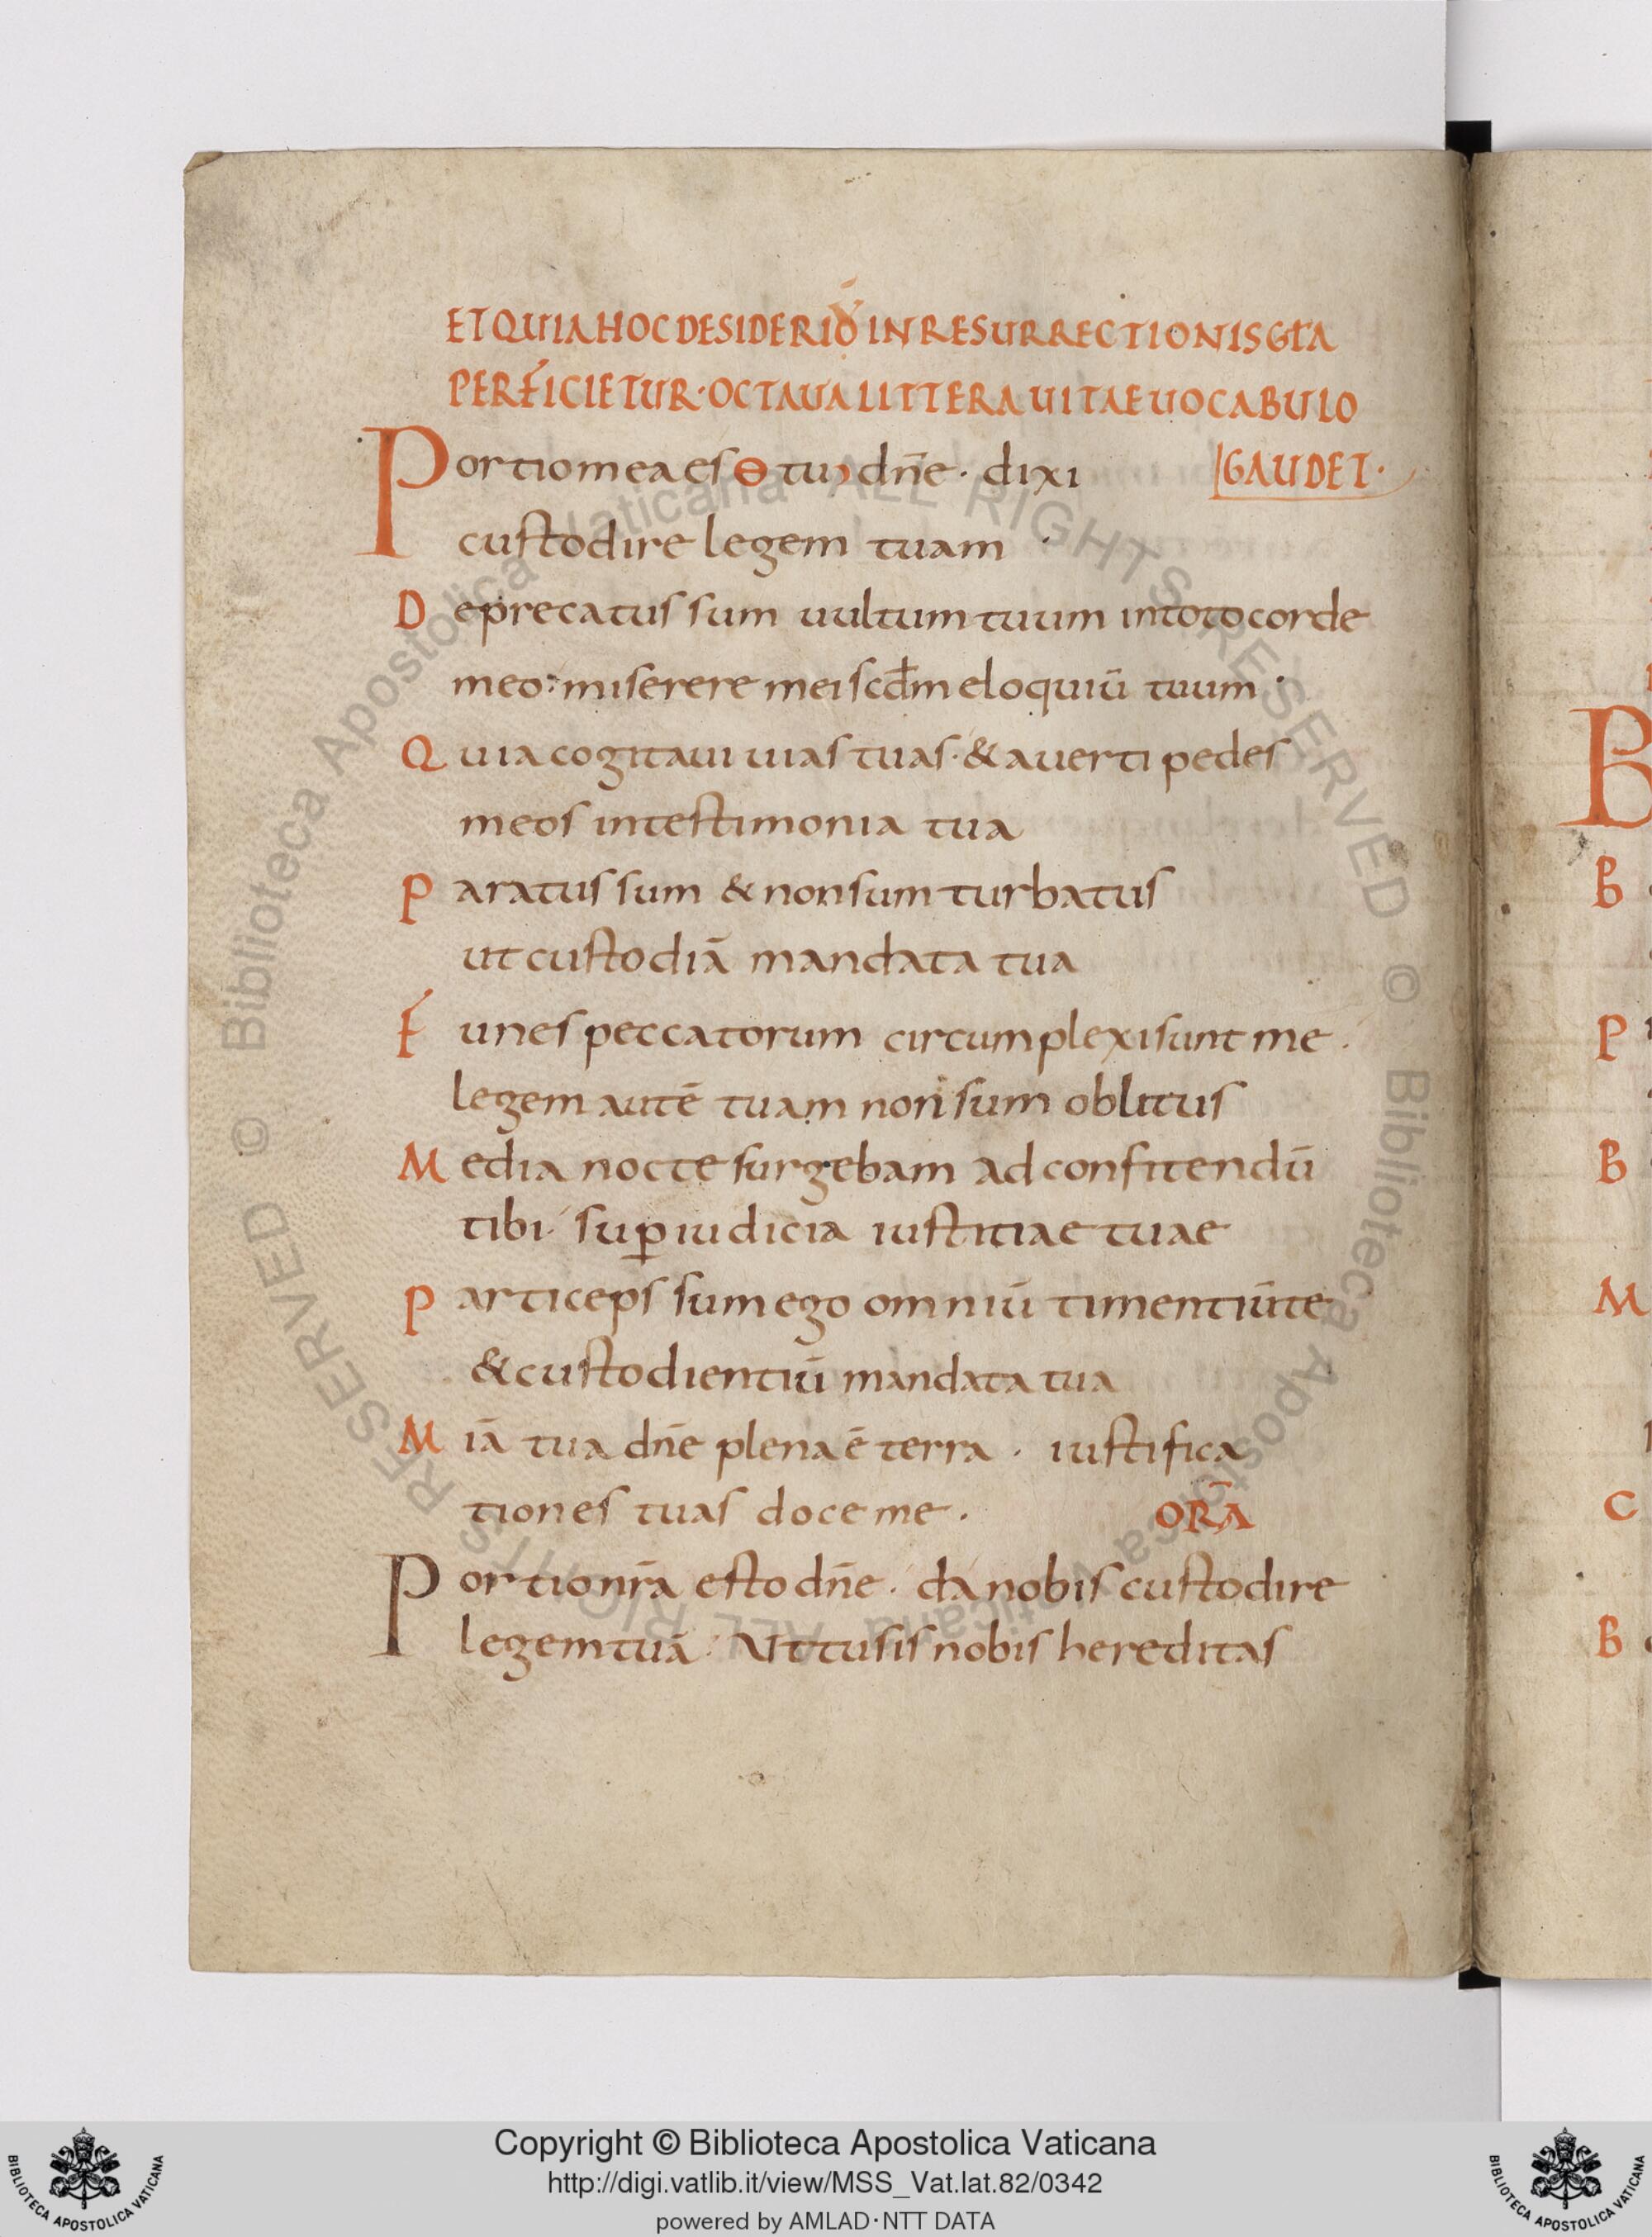 ETQUIAHOCDESIDERIO INRESURRECTIONISGLA
PERFICIETUR·OCTAUALITTERA UITAEUOCABULO
Portiomeaes tu dn̄e · dixi GAUDET·
custodire legem tuam ·
Deprecatus sum uultumtuum intotocorde
meo: miserere mei scdm̄ eloquiū tuum ·
Quia cogitaui uias tuas · & auerti pedes
meos intestimonia tua
Paratus sum & nonsum turbatus
ut custodiā mandata tua
Funes peccatorum circumplexisunt me ·
legem autē tuam non sum oblitus
Media nocte surgebam ad confitendū
tibi · sup̄ iudicia iustitiae tuae
Particeps sum ego omniū timentiūte
& custodientiū mandata tua
Miā tua dn̄e plena ē terra · iustifica
tiones tuas doce me · ORA̅
Portionr̄a esto dn̄e · da nobis custodire
legemtuā · Uttusis nobis hereditas
B
B
P
B
M
C
B
© Biblioteca Apostolica Vaticana ALL RIGHTS RESERVED © Biblioteca Apostolica Vaticana ALL RIGHTS RESERVED
Copyright © Biblioteca Apostolica Vaticana
http://digi.vatlib.it/view/MSS_Vat.lat.82/0342
powered by AMLAD·NTT DATA
BIBLIOTECA APOSTOLICA VATICANA
BIBLIOTECA APOSTOLICA VATICANA